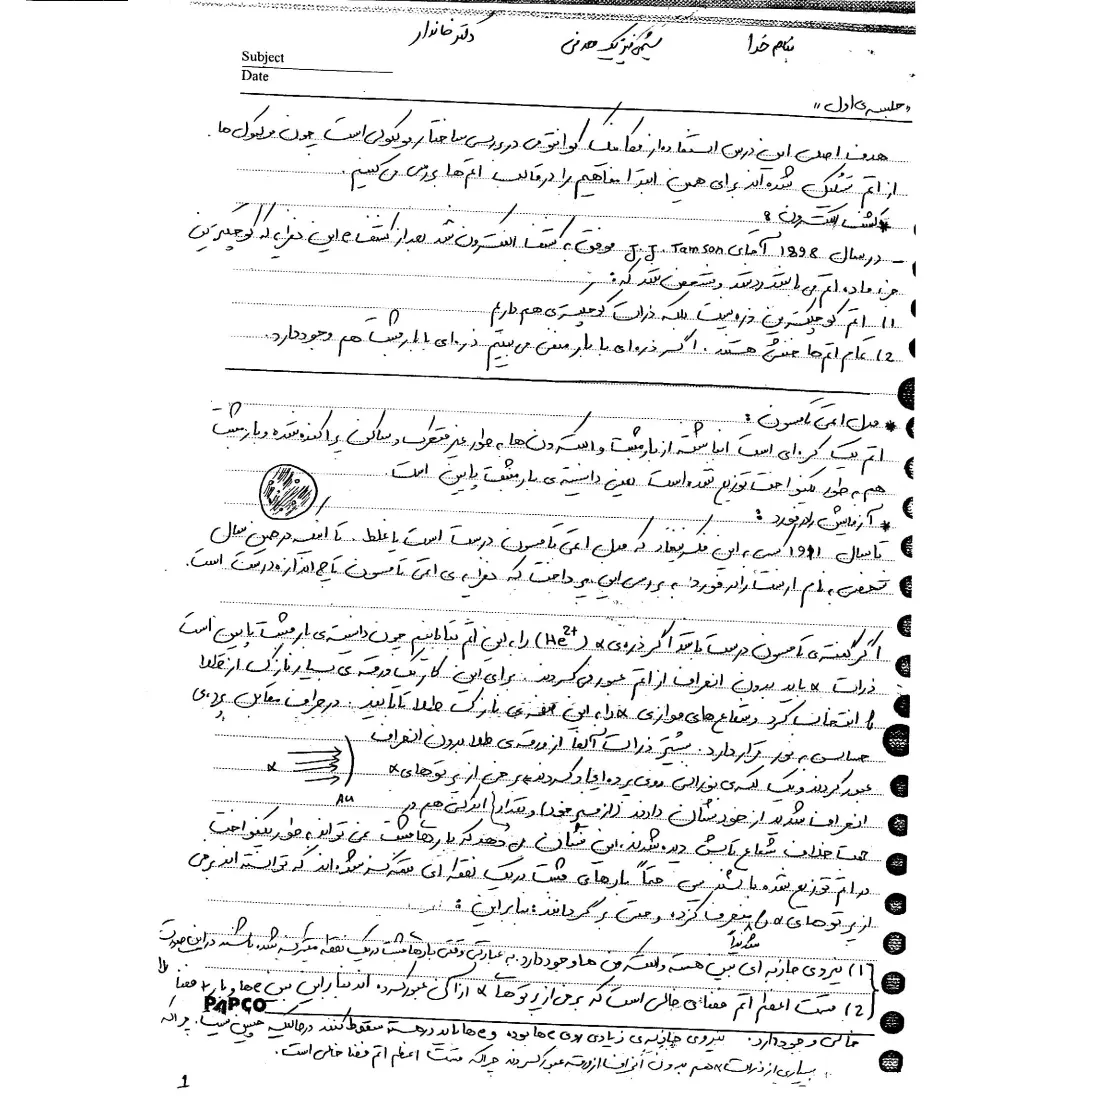 بنام خدا شیمی فیزیک معدنی دکتر خاندار
Subject
Date
«جلسه‌ی اول»
هدف اصلی این درس استفاده از مکانیک کوانتومی در بررسی ساختار مولکولی است چون مولکول ها
از اتم تشکیل شده اند برای همین ابتدا مفاهیم را در قالب اتم‌ها بررسی می کنیم.
* کشف الکترون :
– در سال 1898 آقای J.J. Tamson موفق به کشف الکترون شد بعد از کشف e این نظریه که کوچکترین
جزء ماده اتم می باشد رد شد و مشخص شد که:
1) اتم کوچکترین ذره نیست بلکه ذرات کوچکتری هم داریم
2) تمام اتم‌ها خنثی هستند. اگر ذره‌ای با بار منفی می بینیم ذره‌ای با بار مثبت هم وجود دارد.
* مدل اتمی تامسون :
اتم یک کره‌ای است انباشته از بار مثبت و الکترون‌ها به طور غیر متحرک و ساکن پراکنده شده و بار مثبت
هم به طور یکنواخت توزیع شده است یعنی دانسیته‌ی بار مثبت پایین است.
* آزمایش رادرفورد :
تا سال 1911 کسی به این فکر نیفتاد که مدل اتمی تامسون درست است یا غلط. تا اینکه در همین سال
شخصی به نام ارنست رادرفورد به بررسی این پرداخت که نظریه‌ی اتمی تامسون تا چه اندازه درست است.
اگر گفته‌ی تامسون درست باشد اگر ذره‌ی α (He2+) را به این اتم بتابانیم چون دانسیته‌ی بار مثبت پایین است
ذرات α باید بدون انحراف از اتم عبور می کردند. برای این کار یک ورقه‌ی بسیار نازک از طلا
را انتخاب کرد و شعاع های موازی α را به این صفحه‌ی نازک طلا تابانید. در طرف مقابل پرده‌ی
حساس به نور قرار دارد. بیشتر ذرات آلفا از ورقه‌ی طلا بدون انحراف
عبور کردند و یک لکه‌ی نورانی روی پرده ایجاد کردند برخی از پرتوهای α
α Au
انحراف شدید از خودشان دادند (از مسیر خود) و مقدار اندکی هم در
جهت خلاف شعاع تابش دیده شدند، این نشان می دهد که بارهای مثبت نمی تواند به طور یکنواخت
در اتم توزیع شده باشند پس حتماً بارهای مثبت در یک نقطه ای متمرکز شده‌اند که توانسته اند برخی
از پرتوهای α را شدیداً منحرف کرده و حتی برگردانند؛ بنابراین :
1) نیروی جاذبه ای بین هسته و الکترون ها وجود دارد. به عبارتی وقتی بارهای مثبت در یک نقطه متمرکز شده باشند در این صورت
2) قسمت اعظم اتم فضای خالی است که برخی از پرتوهای α از آن عبور کرده اند بنابراین بین e ها و بار + فضا
PAPCO
خالی وجود دارد. نیروی جاذبه‌ی زیادی روی e ها بوده و e ها باید در هسته سقوط کنند در حالیکه چنین نیست. چرا که
بسیاری از ذرات α هم بدون انحراف از ورقه عبور کردند چرا که قسمت اعظم اتم فضا خالی است.
1